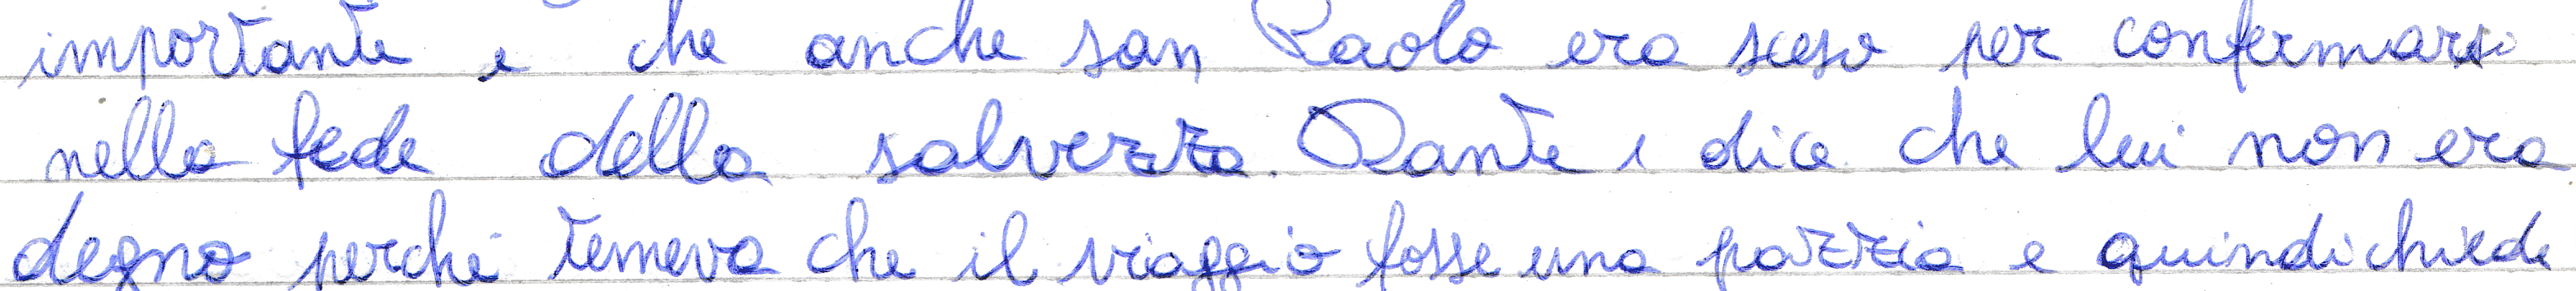 importante e che anche san Paolo era sceso per confermarsi
nella fede della salvezza. Dante e dice che lui non era
degno perché temeva che il viaggio fosse una pazzia e quindi chiede